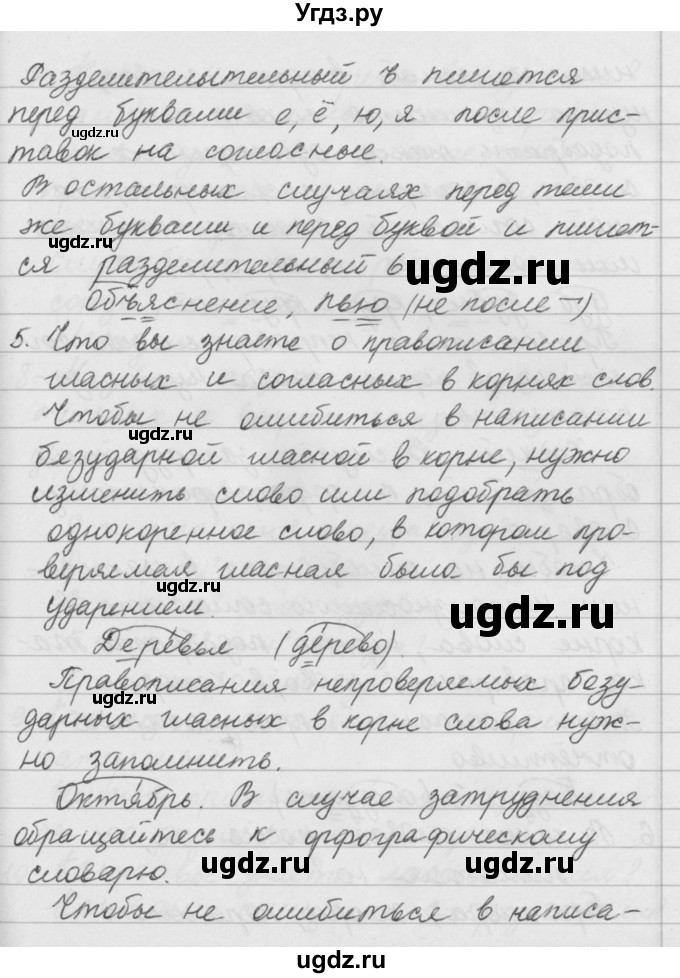 Угдз.ру
Разделительтельный ъ пишется
перед буквами е, ё, ю, я после прис-
ugdz.ru ugdz.ru
тавок на согласные.
В остальных случаях перед теми
же буквами и перед буквой и пишет-
ugdz.ru
ся разделительный ь
ugdz.ru
Объяснение, пью (не после ¬)
5. Что вы знаете о правописании
гласных и согласных в корнях слов.
Чтобы не ошибиться в написании
ugdz.ru
безударной гласной в корне, нужно
изменить слово или подобрать
однокоренное слово, в котором про-
веряемая гласная была бы под
ugdz.ru ugdz.ru
ударением.
Деревья (дерево)
Правописания непроверяемых безу-
ugdz.ru
дарных гласных в корне слова нуж-
но запомнить.
Октябрь. В случае затруднения
обращайтесь к орфографическому
ugdz.ru ugdz.ru
словарю.
Чтобы не ошибиться в написа-
ugdz.ru